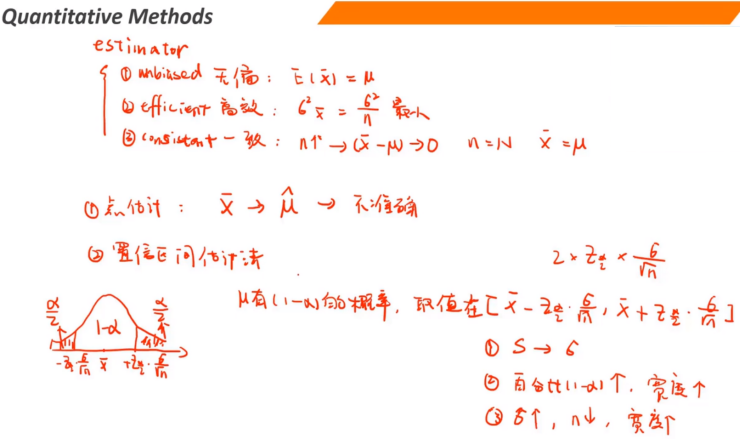 Quantitative Methods
estimator
① unbiased 无偏: E(x̄) = μ
② efficient 高效: σ²x̄ = σ²/n 最小
③ consistent 一致: n↑ → (x̄ - μ) → 0 n = N x̄ = μ
① 点估计: x̄ → μ̂ → 不准确
② 置信区间估计法
2 × Zα/2 × σ/√n
μ有(1-α)的概率, 取值在[x̄ - Zα/2 · σ/√n, x̄ + Zα/2 · σ/√n]
α/2 α/2
1-α
-Zα/2 · σ/√n x̄ +Zα/2 · σ/√n
① S → σ
② 百分比(1-α)↑, 宽度↑
③ σ↑, n↓, 宽度↑